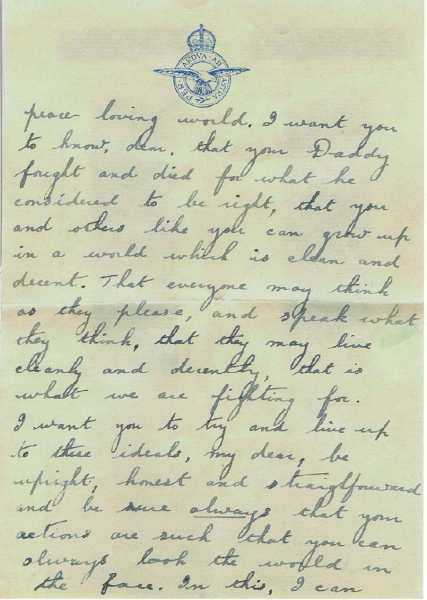 PER ARDVA AD ASTRA
peace loving world. I want you
to know, dear, that your Daddy
fought and died for what he
considered to be right, that you
and others like you can grow up
in a world which is clean and
decent. That everyone may think
as they please, and speak what
they think, that they may live
cleanly and decently, that is
what we are fighting for.
I want you to try and live up
to these ideals, my dear, be
upright, honest and straigtforward
and be sure always that your
actions are such that you can
always look the world in
the face. In this, I can